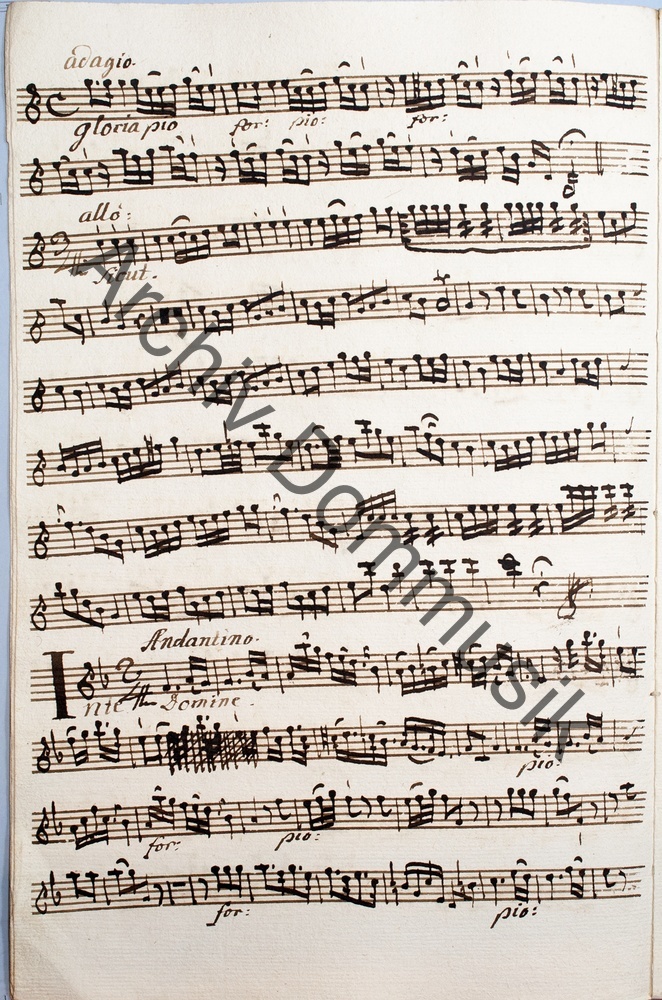 adagio.
gloria pio for: pio: for:
allo:
Sicut.
Andantino.
In te Domine.
pio:
for: pio:
for: pio:
Archiv Dommusik